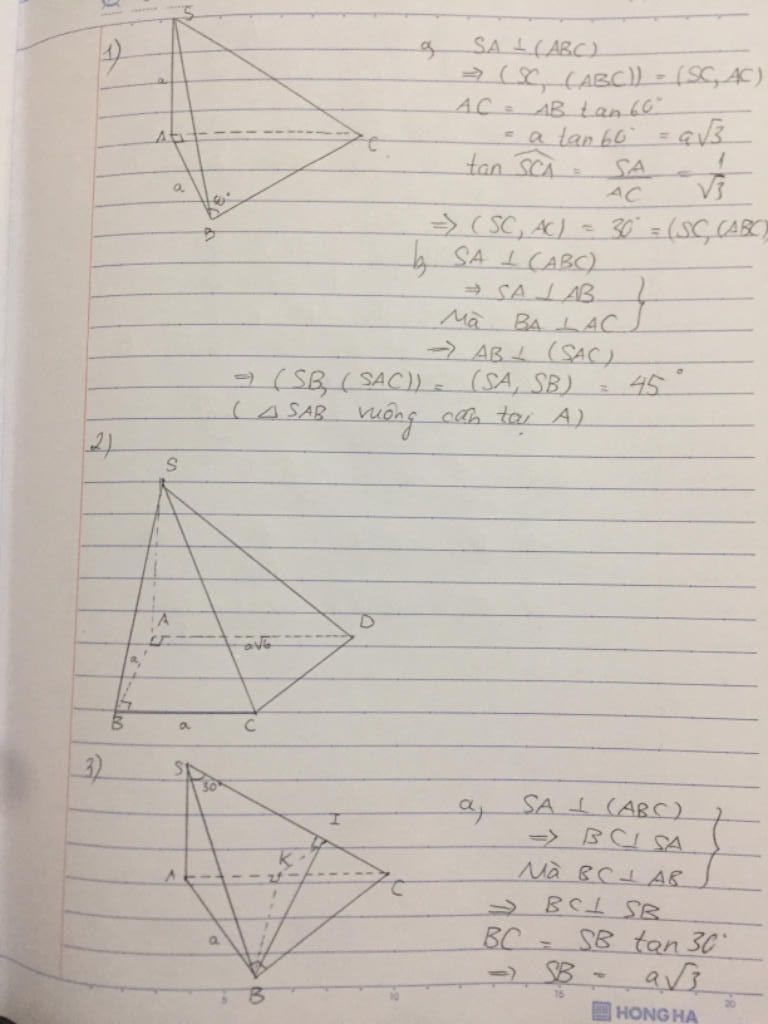 1)
S
a
A
C
a
60°
B
a, SA ⊥ (ABC)
⇒ (SC, (ABC)) = (SC, AC)
AC = AB tan60°
= a tan60° = a√3
tan SCA = SA/AC = 1/√3
⇒ (SC, AC) = 30° = (SC, (ABC)
b, SA ⊥ (ABC)
⇒ SA ⊥ AB
Mà BA ⊥ AC
⇒ AB ⊥ (SAC)
⇒ (SB, (SAC)) = (SA, SB) = 45°
(△SAB vuông cân tại A)
2)
S
A
D
a
a√6
B
a
C
3)
S
30°
I
K
A
C
a
B
a, SA ⊥ (ABC)
⇒ BC ⊥ SA
Mà BC ⊥ AB
⇒ BC ⊥ SB
BC = SB tan30°
⇒ SB = a√3
5
10
15
20
HONG HA